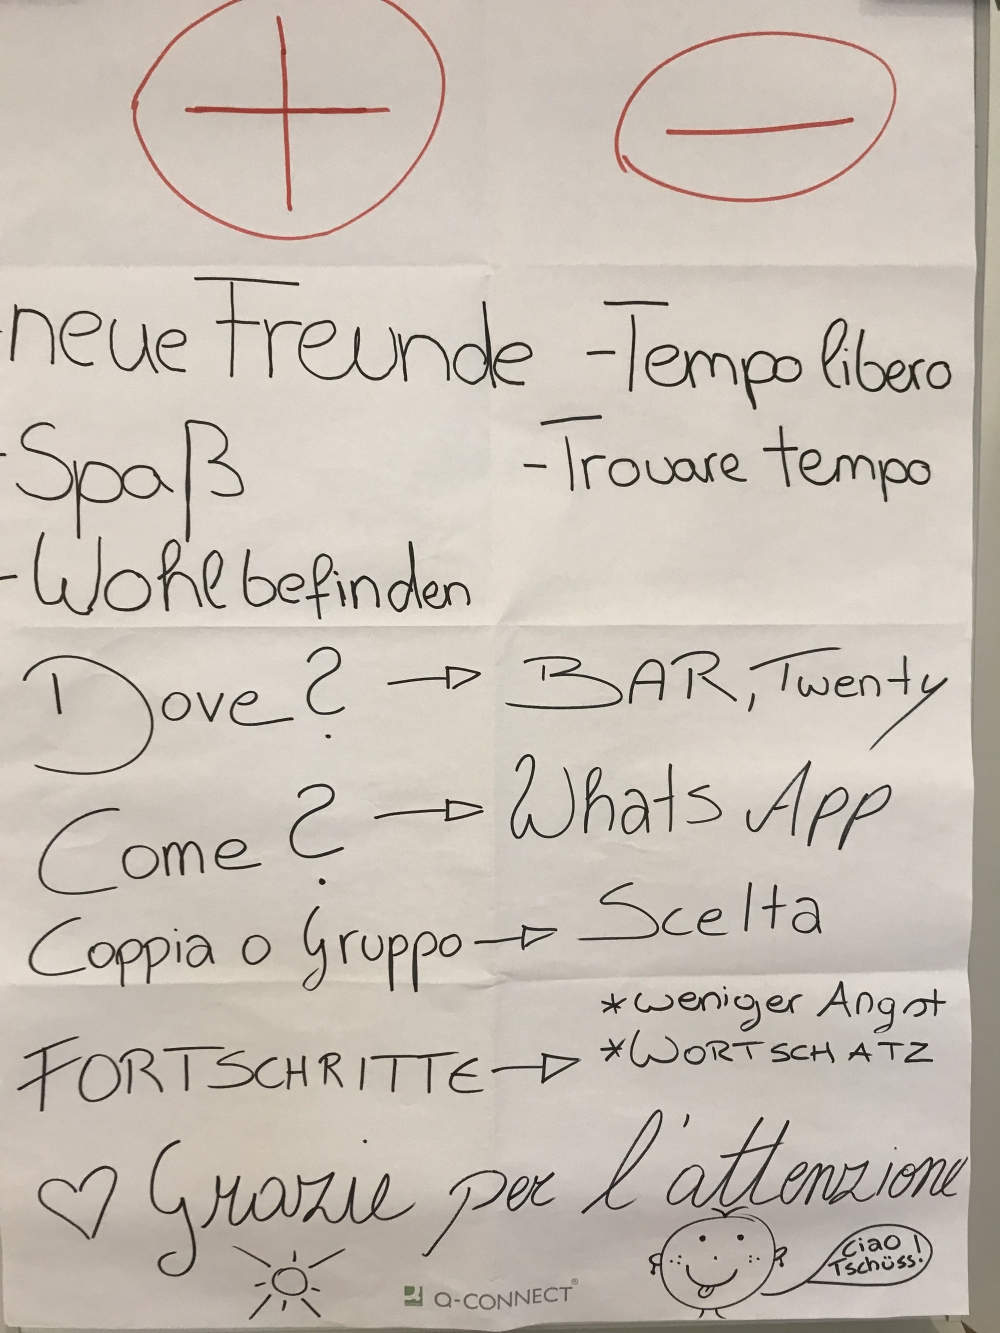 - neue Freunde
- Spaß
- Wohlbefinden
- Tempo libero
- Trovare tempo
Dove? → BAR, Twenty
Come? → Whats App
Coppia o Gruppo → Scelta
FORTSCHRITTE → * weniger Angst
* WORTSCHATZ
♡ Grazie per l'attenzione
Ciao!
Tschüss!
Q-CONNECT®